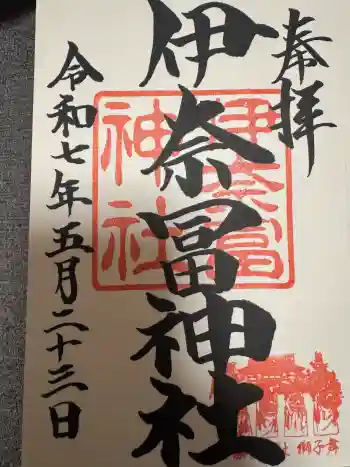 奉拝
伊奈冨神社
令和七年五月二十三日
伊奈冨
神社
獅子舞